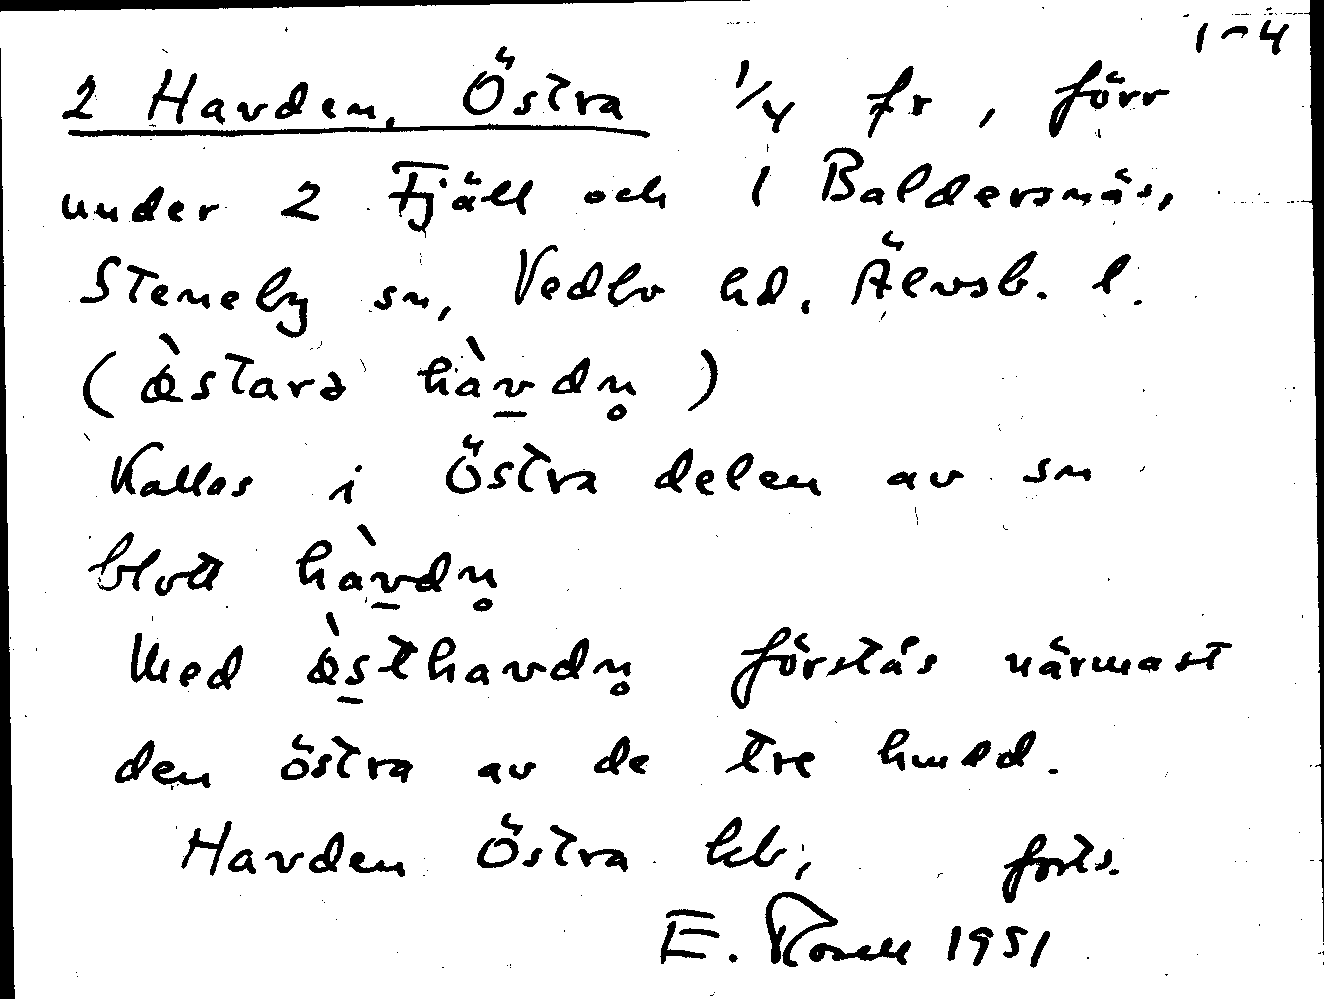 1–4
2 Havden, Östra 1/4 fr, förr
under 2 Fjäll och 1 Baldersnäs,
Steneby sn, Vedbo hd. Älvsb. l.
(ò̤starə hàv̲dn̥)
Kallas i östra delen av sn
blott hàv̲dn̥
Med ò̤s̲thavdn̥ förstås närmast
den östra av de tre hmdd.
Havden Östra kb, forts.
E. Rosell 1951